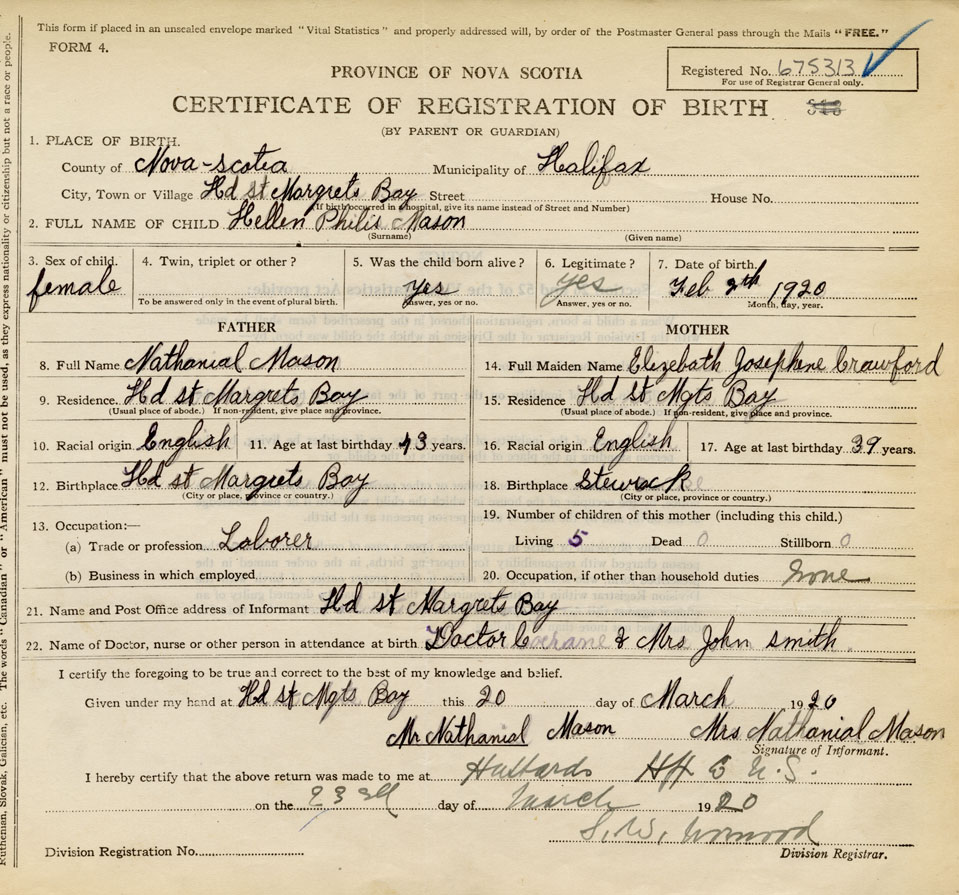 This form if placed in an unsealed envelope marked "Vital Statistics" and properly addressed will, by order of the Postmaster General pass through the Mails "FREE."
FORM 4.
Registered No. 675313
For use of Registrar General only.
PROVINCE OF NOVA SCOTIA
CERTIFICATE OF REGISTRATION OF BIRTH
(BY PARENT OR GUARDIAN)
1. PLACE OF BIRTH.
County of Nova-scotia Municipality of Halifax
City, Town or Village Hd st Margrets Bay Street House No.
(If birth occurred in a hospital, give its name instead of Street and Number)
2. FULL NAME OF CHILD Hellen Philis Mason
(Surname) (Given name)
3. Sex of child. 4. Twin, triplet or other? 5. Was the child born alive? 6. Legitimate? 7. Date of birth.
female Yes yes Feb 1920
To be answered only in the event of plural birth. Answer, yes or no. Answer, yes or no. Month, day, year.
FATHER MOTHER
8. Full Name Nathanial Mason 14. Full Maiden Name Elizebath Josephene Crawford
9. Residence. Hd st Margrets Bay 15. Residence. Hd st Mgts Bay
(Usual place of abode.) If non-resident, give place and province. (Usual place of abode.) If non-resident, give place and province.
10. Racial origin English 11. Age at last birthday 43 years. 16. Racial origin English 17. Age at last birthday 39 years.
12. Birthplace Hd st Margrets Bay 18. Birthplace
(City or place, province or country.) (City or place, province or country.)
13. Occupation:— 19. Number of children of this mother (including this child.)
(a) Trade or profession Laborer Living 5 Dead 0 Stillborn 0
(b) Business in which employed 20. Occupation, if other than household duties None
21. Name and Post Office address of Informant Hd st Margrets Bay
22. Name of Doctor, nurse or other person in attendance at birth Doctor Cochrane & Mrs John smith
I certify the foregoing to be true and correct to the best of my knowledge and belief.
Given under my hand at Hd st Mgts Bay this 20 day of March 1920
Mr Nathanial Mason Mrs Nathanial Mason
Signature of Informant.
I hereby certify that the above return was made to me at Hubbards
on the 23rd day of March 1920
Division Registration No. Division Registrar.
Ruthenian, Slovak, Galician, etc. The words "Canadian" or "American" must not be used, as they express nationality or citizenship but not a race or people.